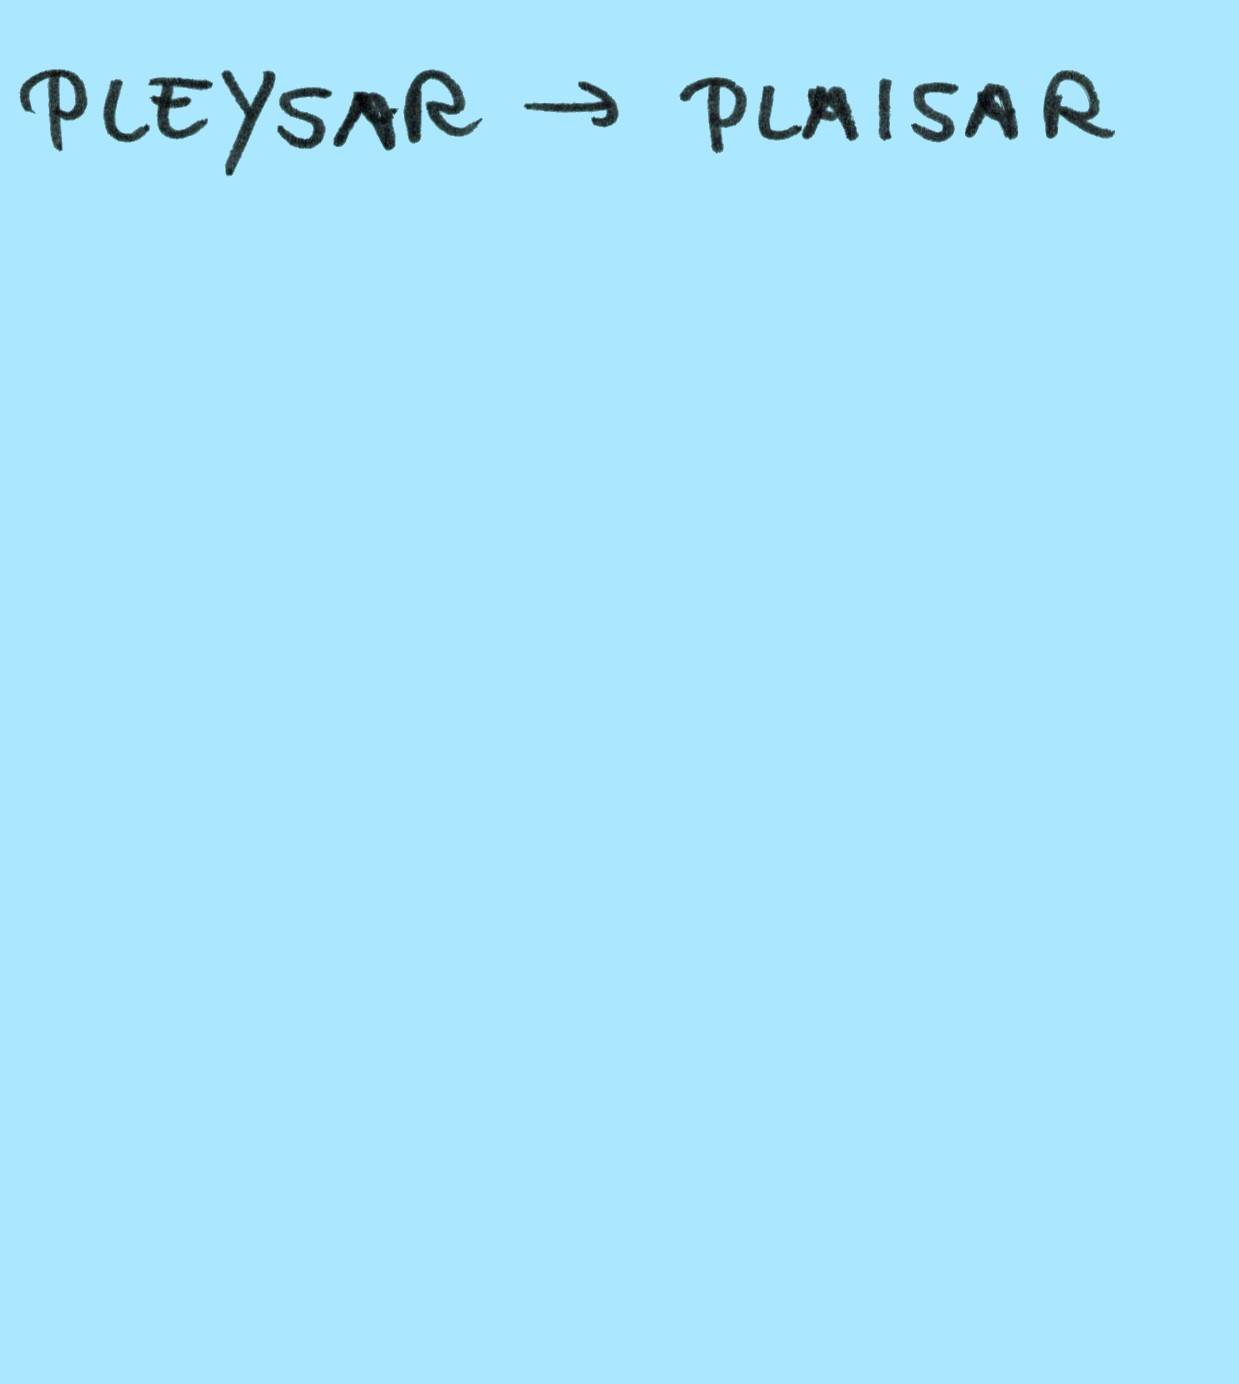 PLEYSAR → PLAISAR